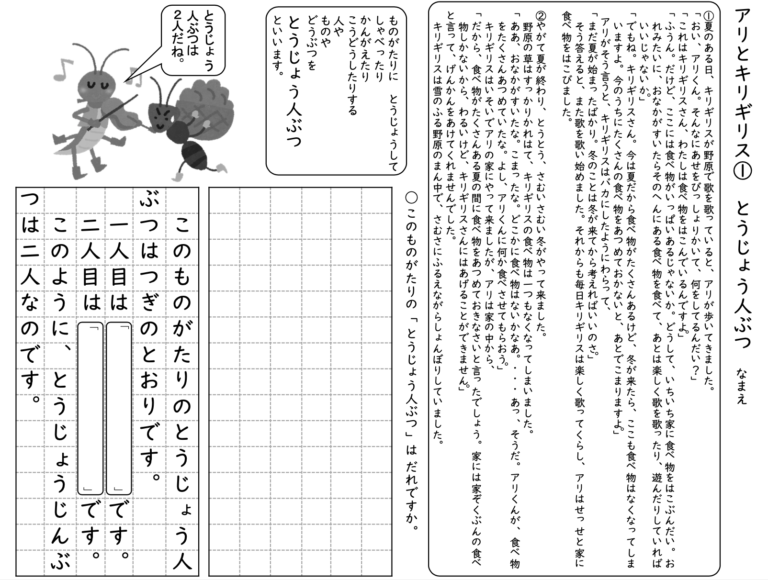 アリとキリギリス① とうじょう人ぶつ なまえ
①夏のある日、キリギリスが野原で歌を歌っていると、アリが歩いてきました。
「おい、アリくん。そんなにあせをびっしょりかいて、何をしてるんだい？」
「これはキリギリスさん、わたしは食べ物をはこんでいるんですよ。」
「ふうん。だけど、ここには食べ物がいっぱいあるじゃないか。どうして、いちいち家に食べ物をはこぶんだい。お
れみたいに、おなかがすいたらそのへんにある食べ物を食べて、あとは楽しく歌を歌ったり、遊んだりしていれば
いいじゃないか。」
「でもね。キリギリスさん。今は夏だから食べ物がたくさんあるけど、冬が来たら、ここも食べ物はなくなってしま
いますよ。今のうちにたくさんの食べ物をあつめておかないと、あとでこまりますよ。」
アリがそう言うと、キリギリスはバカにしたようにわらって、
「まだ夏が始まったばかり。冬のことは冬が来てから考えればいいのさ。」
そう答えると、また歌を歌い始めました。それからも毎日キリギリスは楽しく歌ってくらし、アリはせっせと家に
食べ物をはこびました。
②やがて夏が終わり、とうとう、さむいさむい冬がやって来ました。
野原の草はすっかりかれはて、キリギリスの食べ物は一つもなくなってしまいました。
「ああ、おなかがすいたな。こまったな。どこかに食べ物はないかなあ。・・・あっ、そうだ。アリくんが、食べ物
をたくさんあつめていたな。よし、アリくんに何か食べさせてもらおう。」
キリギリスはいそいでアリの家にやって来ましたが、アリは家の中から、
「だから、食べ物がたくさんある夏の間に食べ物をあつめておきなさいと言ったでしょう。家には家ぞくぶんの食べ
物しかないから、わるいけど、キリギリスさんにはあげることができません。」
と言って、げんかんをあけてくれませんでした。
キリギリスは雪のふる野原のまん中で、さむさにふるえながらしょんぼりしていました。
ものがたりに とうじょうして
しゃべったり
かんがえたり
こうどうしたりする
人や
ものや
どうぶつを
とうじょう人ぶつ
といいます。
とうじょう
人ぶつは
２人だね。
○このものがたりの「とうじょう人ぶつ」は だれですか。
このものがたりのとうじょう人
ぶつはつぎのとおりです。
一人目は「 」です。
二人目は「 」です。
このように、とうじょうじんぶ
つは二人なのです。